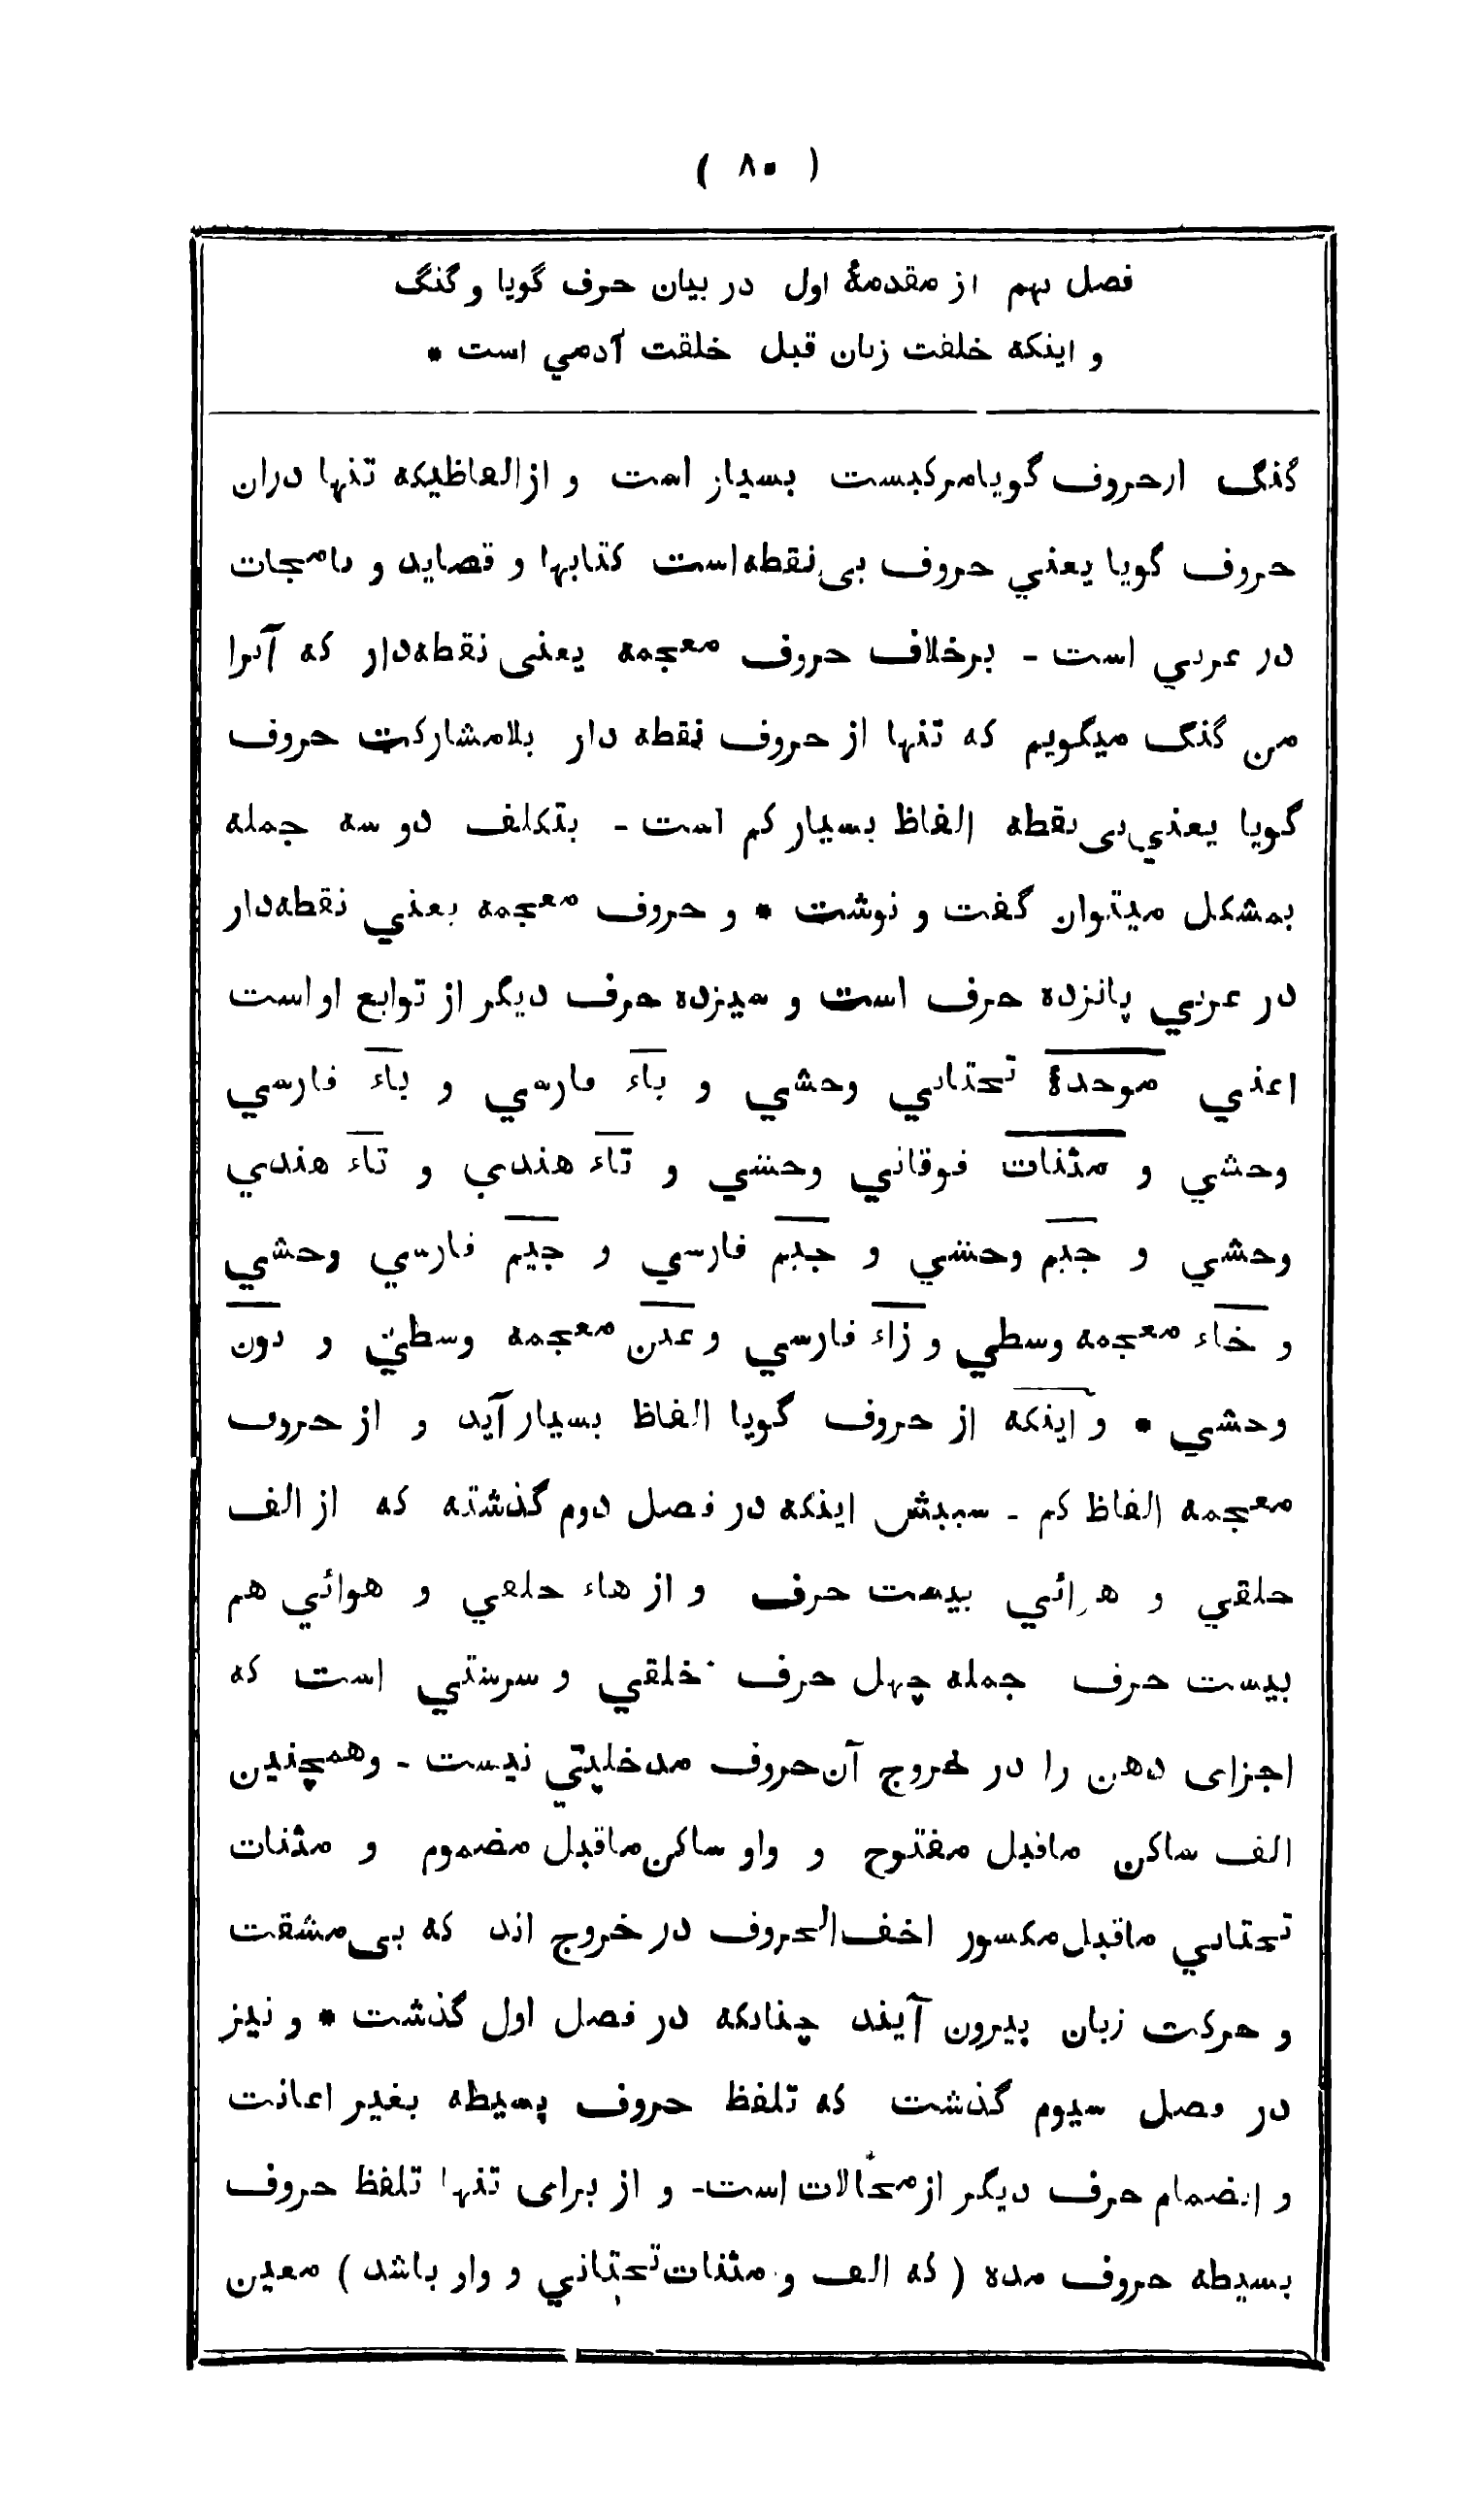 ( ۸۰ )
فصل نهم از مقدمهٔ اول در بیان حرف گویا و گنگ
و اینکه خلقت زبان قبل خلقت آدمي است *
گنگ ازحروف گویامرکبست بسیار است و ازالفاظیکه تنها دران
حروف گویا یعني حروف بی نقطه‌است کتابها و قصاید و نامجات
در عربي است - برخلاف حروف معجمه یعنی نقطه‌دار که آنرا
من گنگ میگویم که تنها از حروف نقطه دار بلامشارکت حروف
گویا یعني بی نقطه الفاظ بسیار کم است - بتکلف دو سه جمله
بمشکل میتوان گفت و نوشت * و حروف معجمه یعني نقطه‌دار
در عربي پانزده حرف است و سیزده حرف دیگر از توابع او است
اعني موحدهٔ تحتاني وحشي و باء فارسي و باء فارسي
وحشي و مثنات فوقاني وحشي و تاء هندي و تاء هندي
وحشي و جیم وحشي و جیم فارسي و جیم فارسي وحشي
و خاء معجمه وسطي و زاء فارسي و غین معجمه وسطي و نون
وحشي * و اینکه از حروف گویا الفاظ بسیار آید و از حروف
معجمه الفاظ کم - سببش اینکه در فصل دوم گذشته که از الف
حلقي و هوائي بیست حرف و از هاء حلقي و هوائي هم
بیست حرف جمله چهل حرف خلقي و سرشتي است که
اجزای دهن را در خروج آن حروف مدخلیتي نیست - وهمچنین
الف ساکن ماقبل مفتوح و واو ساکن ماقبل مضموم و مثنات
تحتاني ماقبل مکسور اخف‌الحروف در خروج اند که بی مشقت
و حرکت زبان بیرون آیند چنانکه در فصل اول گذشت * و نیز
در فصل سیوم گذشت که تلفظ حروف بسیطه بغیر اعانت
و انضمام حرف دیگر از محالات است - و از برای تنها تلفظ حروف
بسیطه حروف مده ( که الف و مثنات تحتاني و واو باشد ) معین